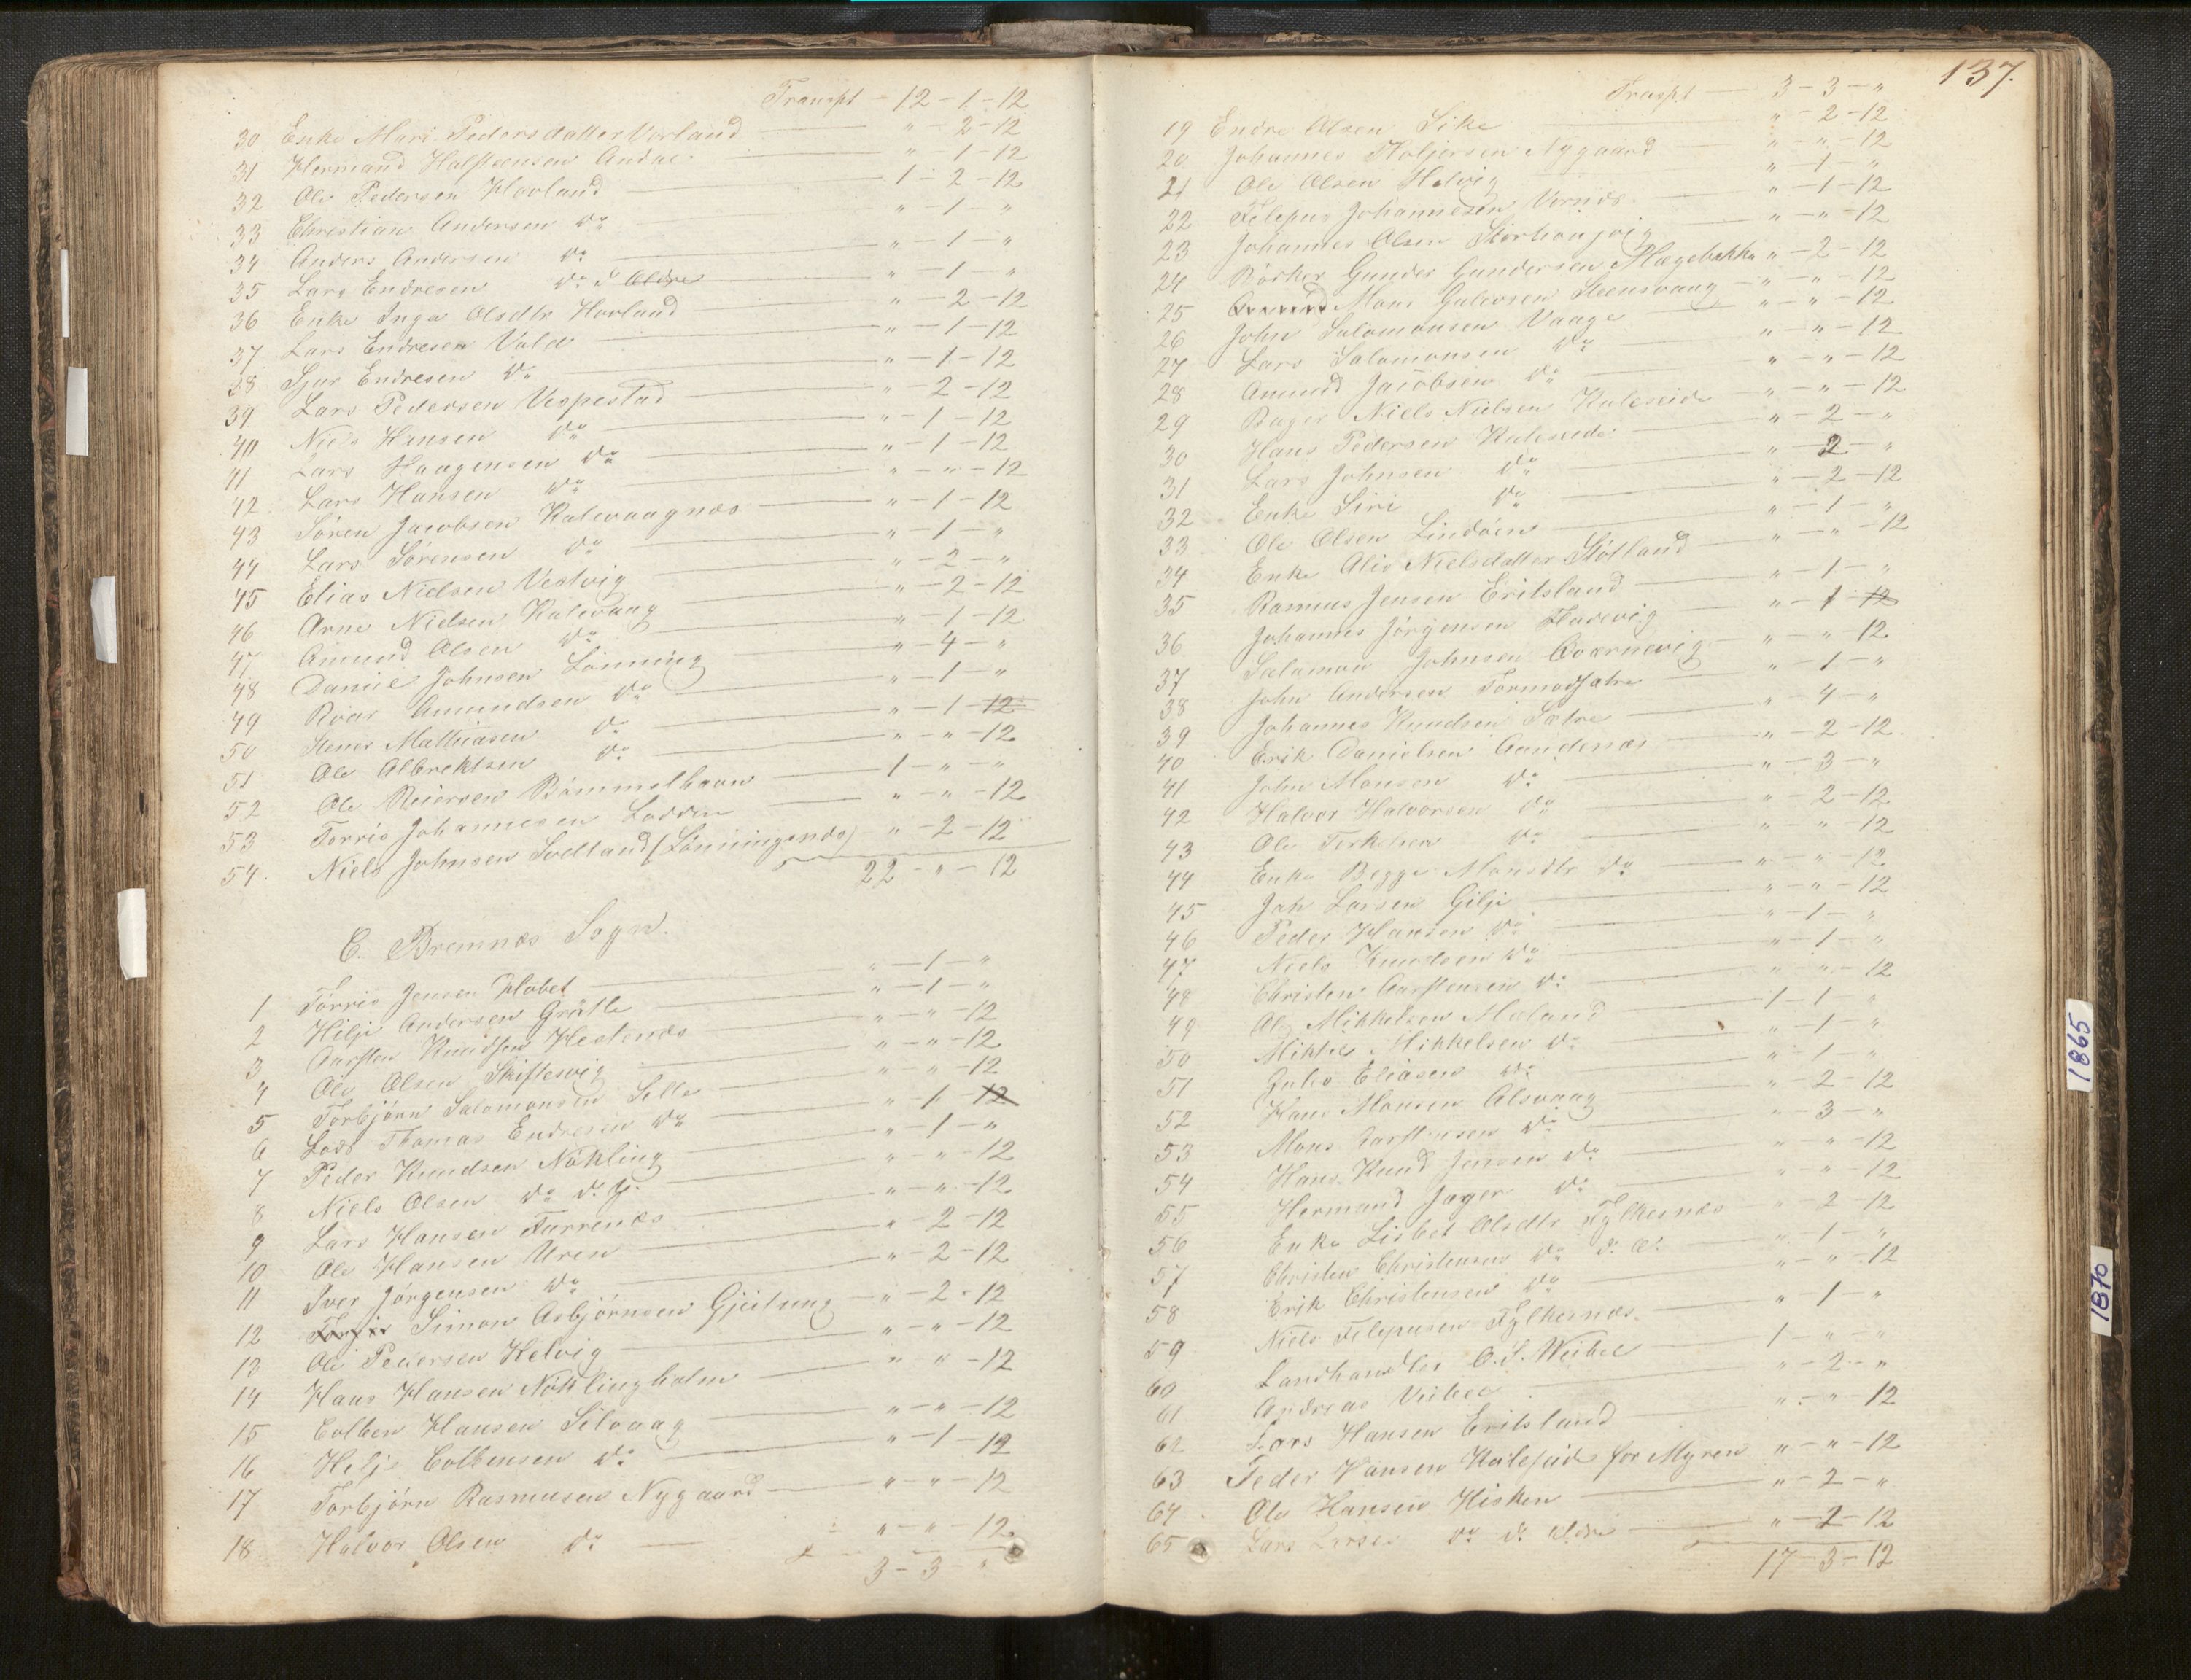 Transpt - 12 - 1 - 12
30 Enke Mari Pedersdatter Vorland " - 2 - 12
31 Hermand Halsteensen Andal " - 1 - 12
32 Ole Pedersen Hovland 1 - 2 - 12
33 Christian Andersen do " - 1 - "
34 Anders Andersen do " - 1 - "
35 Lars Endresen do d Ældre " - 1 - "
36 Enke Inga Olsdtr Hovland " - 2 - 12
37 Lars Endresen Vold " - 1 - 12
38 Sjur Endresen do " - 1 - 12
39 Lars Pedersen Vespestad " - 2 - 12
40 Niels Hansen do " - 1 - 12
41 Lars Haagensen do " - 1 - 12
42 Lars Hansen do " - " - 12
43 Sören Jacobsen Kalevaagnæs " - 1 - 12
44 Lars Sörensen do " - 1 - "
45 Elias Nielsen Vestvig " - 2 - "
46 Arne Nielsen Kalevaag " - 2 - 12
47 Amund Olsen do " - 1 - 12
48 Daniel Johnsen Lönning " - 4 - "
49 Roar Amundsen do " - 1 - "
50 Stener Mathiasen do " - 1 - 12
51 Ole Albrektsen do " - " - 12
52 Ole Reiersen Bömmelhavn 1 - " - "
53 Torris Johannesen Lodden " - " - 12
54 Niels Johnsen Sortland (Lönningsnæs) " - 2 - 12
22 - " - 12
C. Bremnæs Sogn.
1 Torris Jensen Habet " - 1 - "
2 Hilje Andersen Grötle " - 1 - "
3 Aasten Knudsen Hestenæs " - " - 12
4 Ole Olsen Skiftesvig " - " - 12
5 Torbjörn Salomonsen Selle " - " - 12
6 Lods Thomas Endresen do " - 1 - 12
7 Peder Knudsen Nökling " - 1 - "
8 Niels Olsen do d. y. " - " - 12
9 Lars Hansen Turrenæs " - " - 12
10 Ole Hansen Uren " - 2 - 12
11 Iver Jörgensen do " - 2 - 12
12 Simon Asbjörnsen Gjeitung " - 2 - 12
13 Ole Pedersen Helvig " - " - 12
14 Hans Hansen Nöklingholm " - " - 12
15 Colben Hansen Silvaag " - " - 12
16 Helje Colbensen do " - 1 - 12
17 Torbjörn Rasmusen Nygaard " - " - 12
18 Halvor Olsen do " - " - 12
3 - 3 - "
137.
Traspt 3 - 3 - "
19 Endre Olsen Sike " - 2 - 12
20 Johannes Holjersen Nygaard " - " - 12
21 Ole Olsen Helvig " - 1 - "
22 Filipus Johannesen Vornæs " - 1 - 12
23 Johannes Olsen " - " - 12
24 Gunder Gundersen Hægebakke " - 2 - 12
25 Mons Gulevsen Steensvaag " - " - 12
26 John Salomonsen Vaage " - " - 12
27 Lars Salomonsen do " - " - 12
28 Amund Jacobsen do " - " - 12
29 Bager Niels Nielsen Kuleseide " - " - 12
30 Hans Pedersen Kuleseide " - 2 - "
31 Lars Johnsen do " - 2 - "
32 Enke Siri do " - 2 - 12
33 Ole Olsen Lindöen " - 1 - "
34 Enke Alis Nielsdatter Stötland " - " - 12
35 Rasmus Jensen Eritsland " - 1 - "
36 Johannes Jörgensen Harevig " - 1 - 12
37 Salamon Johnsen Qværnevig " - " - 12
38 John Andersen Tormodsætre " - 1 - "
39 Johannes Knudsen Sætre " - 4 - "
40 Erik Danielsen Aandenæs " - 2 - 12
41 John Monsen do " - 3 - "
42 Halvor Halvorsen do " - 2 - 12
43 Ole Terkelsen do " - " - 12
44 Enke Begge Monsdtr do " - " - 12
45 Jon Larsen Gilje " - " - 12
46 Peder Hansen do " - 1 - "
47 Niels Knudsen do " - 1 - "
48 Christen Aasstensen do " - " - 12
49 Ole Mikkelsen Meland 1 - 1 - "
50 Mikkel Mikkelsen do " - 1 - "
51 Gulev Eliasen do " - 1 - "
52 Hans Monsen Alsvaag " - 2 - 12
53 Mons Aasstensen do " - 3 - "
54 Hans Knud Jensen do " - " - 12
55 Hermand Jæger do " - " - 12
56 Enke Lisbet Olsdtr Fylkesnæs " - 2 - 12
57 Christen Christensen do d. Æ. " - 1 - "
58 Erik Christensen do " - " - 12
59 Niels Filipusen Fylkesnæs " - 1 - "
60 Landhandler O. S. Weibel 1 - " - "
61 Andreas Veibel " - 2 - "
62 Lars Hansen Eritsland " - " - 12
63 Peder Hansen Kuleseide for Myren " - " - 12
64 Ole Hansen Hisken " - 2 - "
65 Lars Larsen do d. Ældre " - 2 - 12
17 - 3 - 12
1865
1870